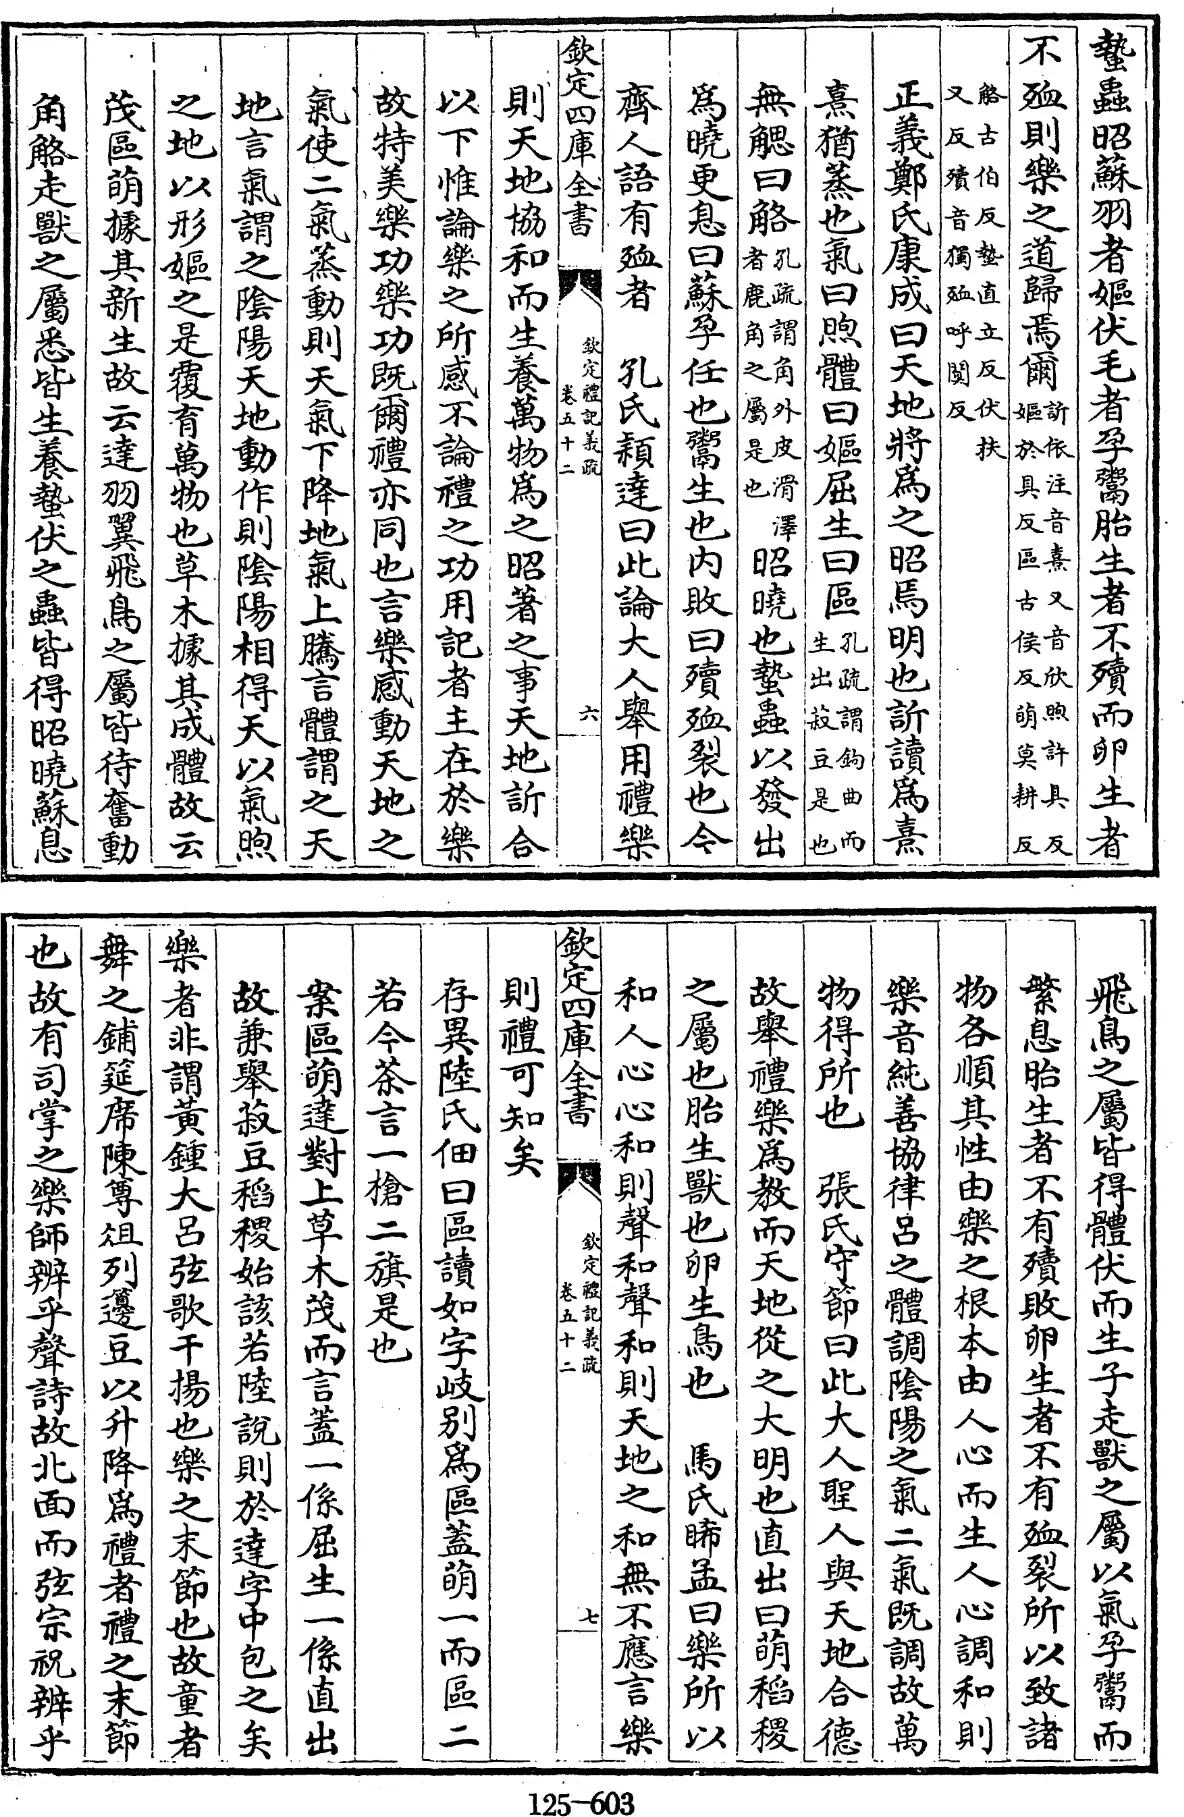 蟄蟲昭蘇羽者嫗伏毛者孕鬻胎生者不殰而卵生者
不殈則樂之道歸焉爾訢依注音熹又音欣煦許具反
嫗於具反區古侯反萌莫耕反
觡古伯反蟄直立反伏扶
又反殰音獨殈呼闃反
正義鄭氏康成曰天地將為之昭焉明也訢讀為熹
熹猶蒸也氣曰煦體曰嫗屈生曰區孔疏謂鉤曲而
生出菽豆是也
無䚡曰觡孔疏謂角外皮滑澤
者鹿角之屬是也昭曉也蟄蟲以發出
為曉更息曰蘇孕任也鬻生也内敗曰殰殈裂也今
齊人語有殈者　孔氏穎達曰此論大人舉用禮樂
欽定四庫全書
欽定禮記義疏
卷五十二
六
則天地協和而生養萬物為之昭著之事天地訢合
以下惟論樂之所感不論禮之功用記者主在於樂
故特美樂功樂功既爾禮亦同也言樂感動天地之
氣使二氣蒸動則天氣下降地氣上騰言體謂之天
地言氣謂之陰陽天地動作則陰陽相得天以氣煦
之地以形嫗之是覆育萬物也草木據其成體故云
茂區萌據其新生故云達羽翼飛鳥之屬皆待奮動
角觡走獸之屬悉皆生養蟄伏之蟲皆得昭曉蘇息
飛鳥之屬皆得體伏而生子走獸之屬以氣孕鬻而
繁息胎生者不有殰敗卵生者不有殈裂所以致諸
物各順其性由樂之根本由人心而生人心調和則
樂音純善協律呂之體調陰陽之氣二氣既調故萬
物得所也　張氏守節曰此大人聖人與天地合德
故舉禮樂為教而天地從之大明也直出曰萌稻稷
之屬也胎生獸也卵生鳥也　馬氏晞孟曰樂所以
和人心心和則聲和聲和則天地之和無不應言樂
欽定四庫全書
欽定禮記義疏
卷五十二
七
則禮可知矣
存異陸氏佃曰區讀如字歧别為區蓋萌一而區二
若今茶言一槍二旗是也
案區萌達對上草木茂而言蓋一係屈生一係直出
故兼舉菽豆稻稷始該若陸說則於達字中包之矣
樂者非謂黃鍾大呂弦歌干揚也樂之末節也故童者
舞之鋪筵席陳尊俎列籩豆以升降為禮者禮之末節
也故有司掌之樂師辨乎聲詩故北面而弦宗祝辨乎
125-603